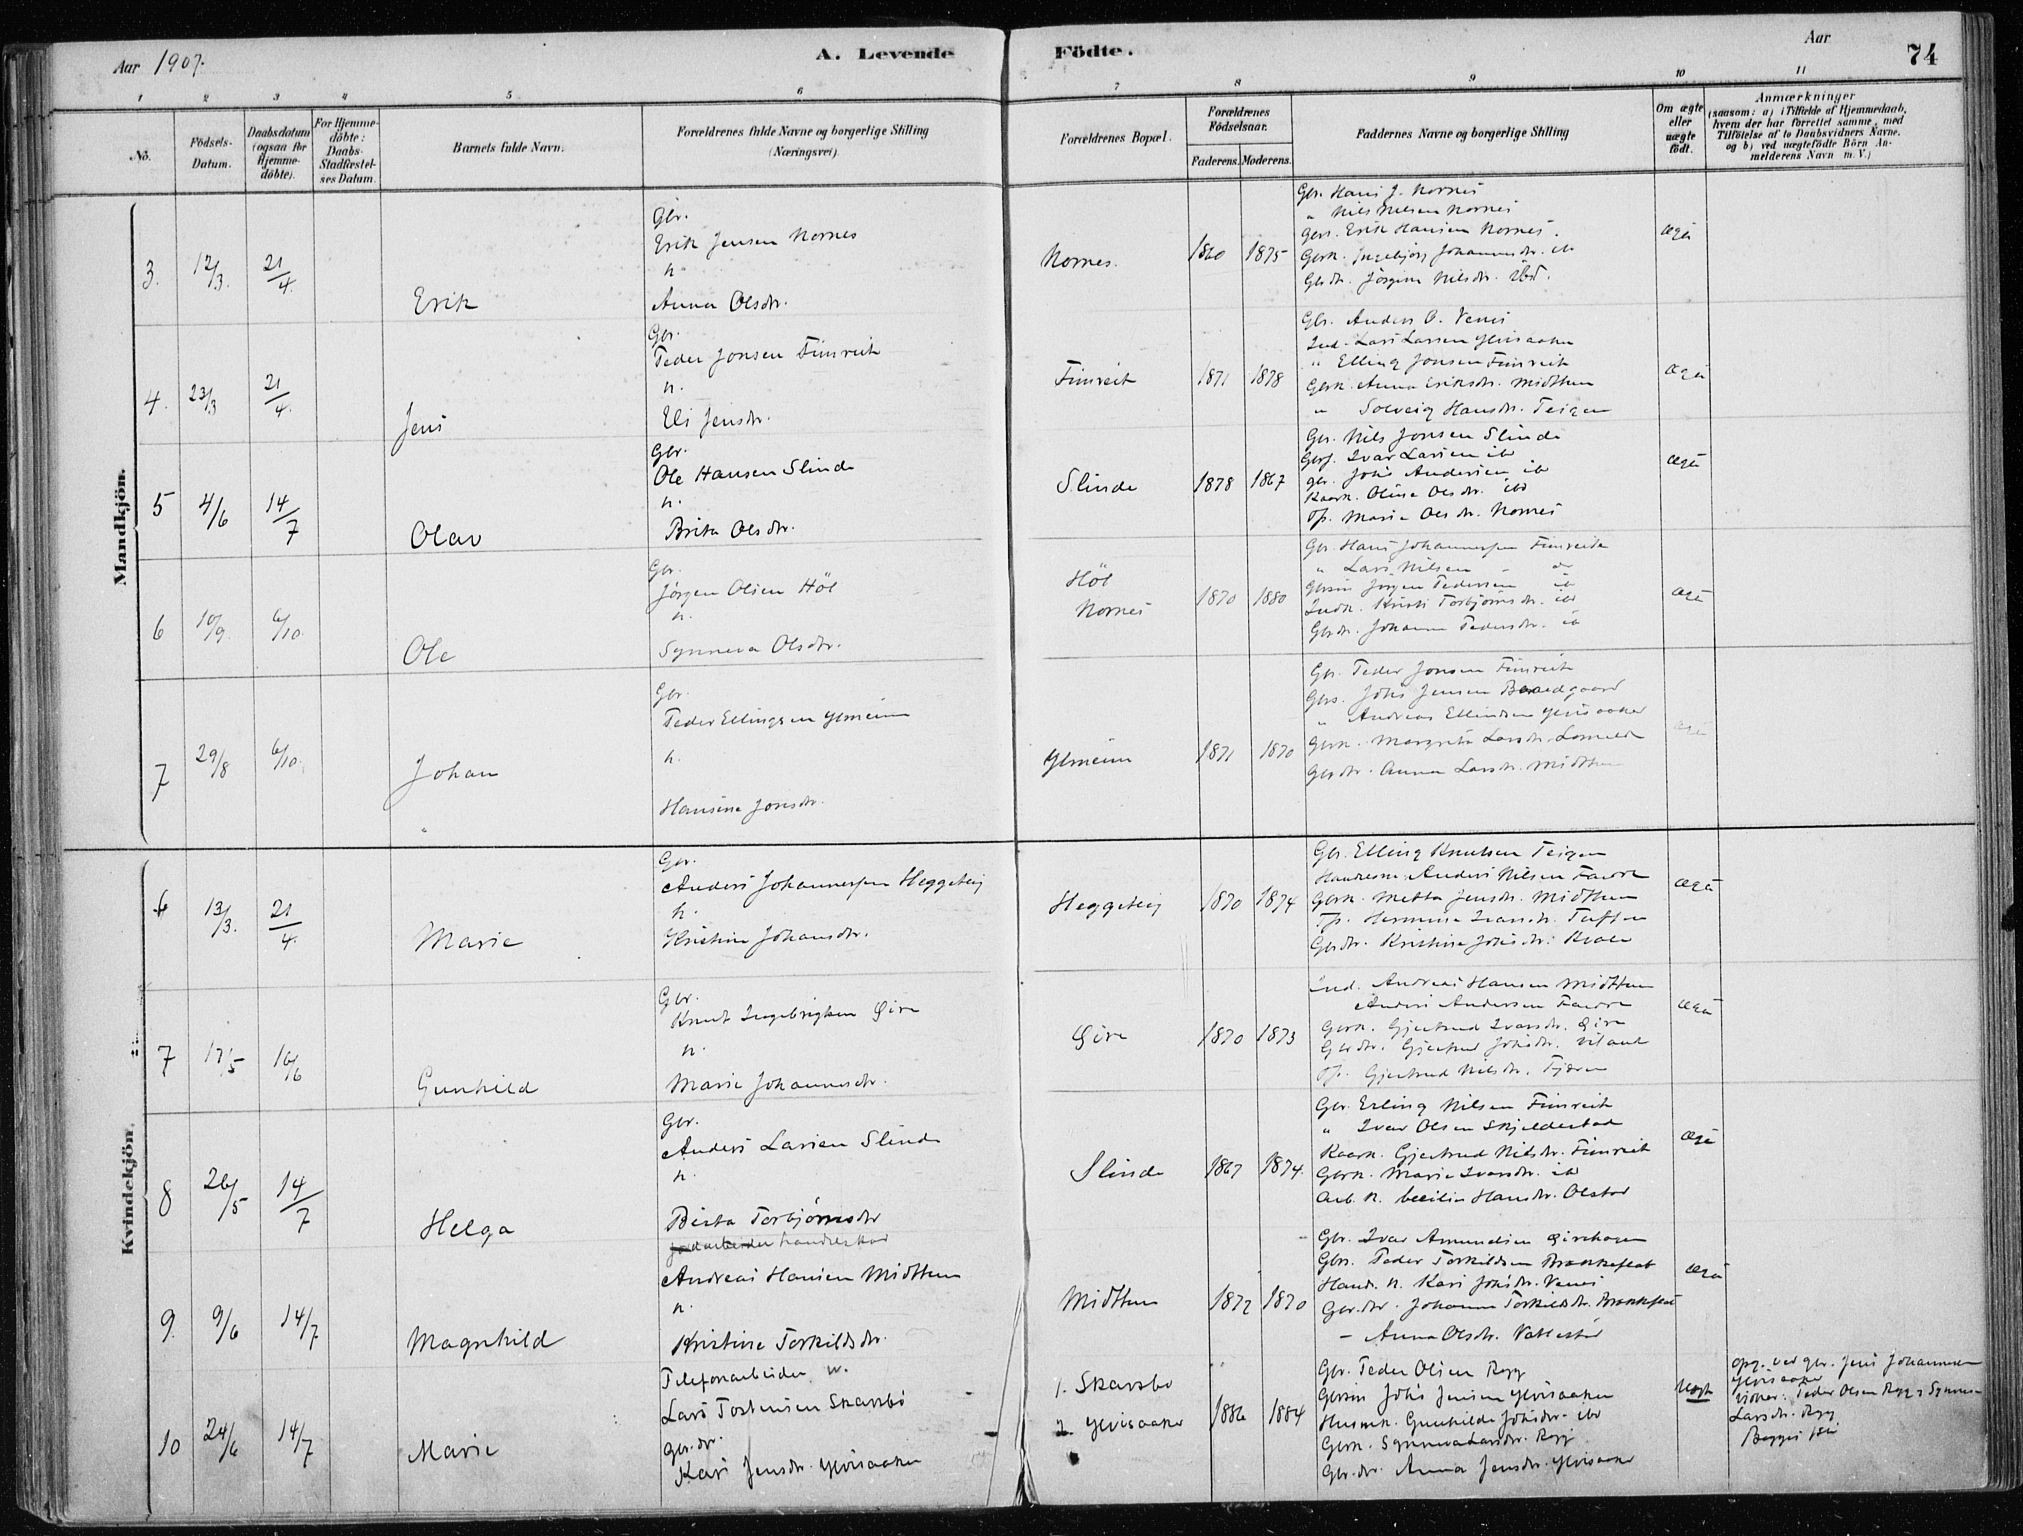 Aar 1907.
A. Levende Födte.
Aar
74
1 2 3 4 5 6 7 8 9 10 11
No.
Födsels-Datum.
Daabsdatum (ogsaa for Hjemme-döbte).
For Hjemme-döbte: Daabs-Stadfæstel-ses Datum.
Barnets fulde Navn.
Forældrenes fulde Navne og borgerlige Stilling (Næringsvei)
Forældrenes Bopæl.
Forældrenes Födselsaar.
Faderens. Moderens.
Faddernes Navne og borgerlige Stilling
Om ægte eller uægte födt.
Anmærkninger
(saasom: a) i Tilfælde af Hjemmedaab, hvem der har forrettet samme, med Tilföielse af to Daabsvidners Navne, og b) ved uægtefödte Börn An-melderens Navn m. V.)
Mandkjön.
3. 12/3. 21/4.
Erik
Gbr.
Erik Jensen Nornes
h.
Anna Olsdtr.
Nornes. 1860 1875
Gbr. Hans J. Nornes
" Nils Nilsen Nornes
Gbrs. Erik Hansen Nornes.
Gbrk. Ingebjörg Johannesdtr. ib
Gbrdtr. Jörgine Nilsdtr. ibd.
ægte
4. 23/3 21/4.
Jens
Gbr.
Peder Jonsen Fimreite
h.
Eli Jensdtr.
Fimreite 1871 1878
Gbr. Anders O. Venes
Ind. Lars Larsen Ylvisaaker
" Elling Jonsen Fimreite
Gbrk. Anna Eriksdtr. Midthun
" Solveig Hansdtr. Teigen
ægte
5 4/6 14/7
Olav
Gbr.
Ole Hansen Slinde
h.
Brita Olsdtr.
Slinde 1878 1867
Gbr. Nils Jonsen Slinde
Ivar Larsen ib
Gbr. Johs Andersen ib
Kaark. Oline Olsdtr. ibd
Tp. Marie Olsdtr. Nornes
ægte
6 10/9. 6/10.
Ole
Gbr.
Jörgen Olsen Höl
h.
Synneva Olsdtr.
Höl
Nornes 1870 1880
Gbr. Hans Johannessen Fimreite
" Lars Nilsen
Gbrsn Jörgen Pedersen ib
Indk. Kristi Torbjörnsdtr. ibd
Gbrdtr. Johanne Pedersdtr. ib
ægte
7 29/8 6/10.
Johan
Gbr.
Peder Ellingsen Ylmeim
h.
Hansine Jonsdtr.
Ylmeim 1871 1870
Gbr. Peder Jonsen Fimreite
Gbrs. Johs Jensen
" Andreas Ellindsen Ylvisaaker
Gbrk. Margreta Larsdtr. Lomelde
Gbrdtr. Anna Larsdtr. Midthun
ægte
Kvindekjön.
6 13/3. 21/4.
Marie
Gbr.
Anders Johannessen Heggeteig
h.
Kristine Johansdtr.
Heggeteig 1870 1874
Gbr. Elling Knutsen Teigen
Anders Nilsen Fardal
Gbrk. Metta Jensdtr. Midthun
Tp. Hermine Ivarsdtr. Tuften
Gbrdtr. Kristine Johsdtr. Kvale
ægte
7 17/5 16/6
Gunhild
Gbr.
Knut Ingebrigtsen Eire
h.
Marie Johannesdtr.
Eire 1870 1873
Ind. Andreas Hansen Midthun
Anders Andersen Fardal
Gbrk. Gjertrud Ivarsdtr. Eire
Gbrdtr. Gjertrud Johsdtr.
Tp. Gjertrud Nilsdtr. Fjæren
ægte
8 26/5 14/7
Helga
Gbr.
Anders Larsen Slinde
h.
Birta Torbjörnsdtr
Slinde 1867 1874.
Gbr. Erling Nilsen Fimreite
" Ivar Olsen Skjeldestad
Kaark. Gjertrud Nilsdtr. Fimreite
Gbrk. Marie Ivarsdtr. ib
Arb. k. Cecilie Hansdtr. Olstad
ægte
9. 9/6 14/7
Magnhild
Handelskar
Andreas Hansen Midthun
h.
Kristine Torkildsdtr.
Midthun 1872 1870
Gbr. Ivar Amundsen Eirehagen
Gbrs. Peder Torkildsen Brækkeflat
Hand. k. Kari Johsdtr. Venes
Gbr.dtr. Johanne Torkildsdtr. Brækkeflat
- Anna Olsdtr. Vallestad
ægte
10 24/6 14/7
Marie
Telefonarbeider
Lars Tostensen Skarsbö
Gbr.dtr.
Kari Jensdtr. Ylvisaaker
1. Skarsbo
2. Ylvisaaker 1886 1884
Gbr. Peder Olsen Rygg
Gbrsn Johs Jensen Ylvisaaker
Husmk. Gunhilde Johsdtr. ibd
Gbrk. Synneva Larsdtr. Rygg
Gbr.dtr. Anna Jensdtr. Ylvisaaker
Uægte
Opg. ved gbr. Jens Johannesen
Ylvisaaker
Vidner: Peder Olsen Rygg & Synneva
Larsdtr. Rygg.
Begges 1ste